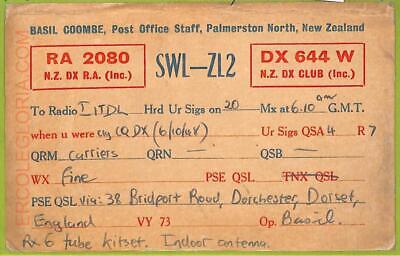 BASIL COOMBE, Post Office Staff, Palmerston North, New Zealand
RA 2080
N.Z. DX R.A. (Inc.)
SWL-ZL2
DX 644 W
N.Z. DX CLUB (Inc.)
To Radio I1TDL Hrd Ur Sigs on 20 Mx at 6.10 am G.M.T.
when u were clg CQ DX (6/10/48) Ur Sigs QSA 4 R 7
QRM Carriers QRN - QSB -
WX Fine PSE QSL TNX QSL
PSE QSL via: 38 Bridport Road, Dorchester, Dorset,
England VY 73 Op. Basil.
Rx 6 tube kitset. Indoor antenna.
ERCOLEGLORIA.COM